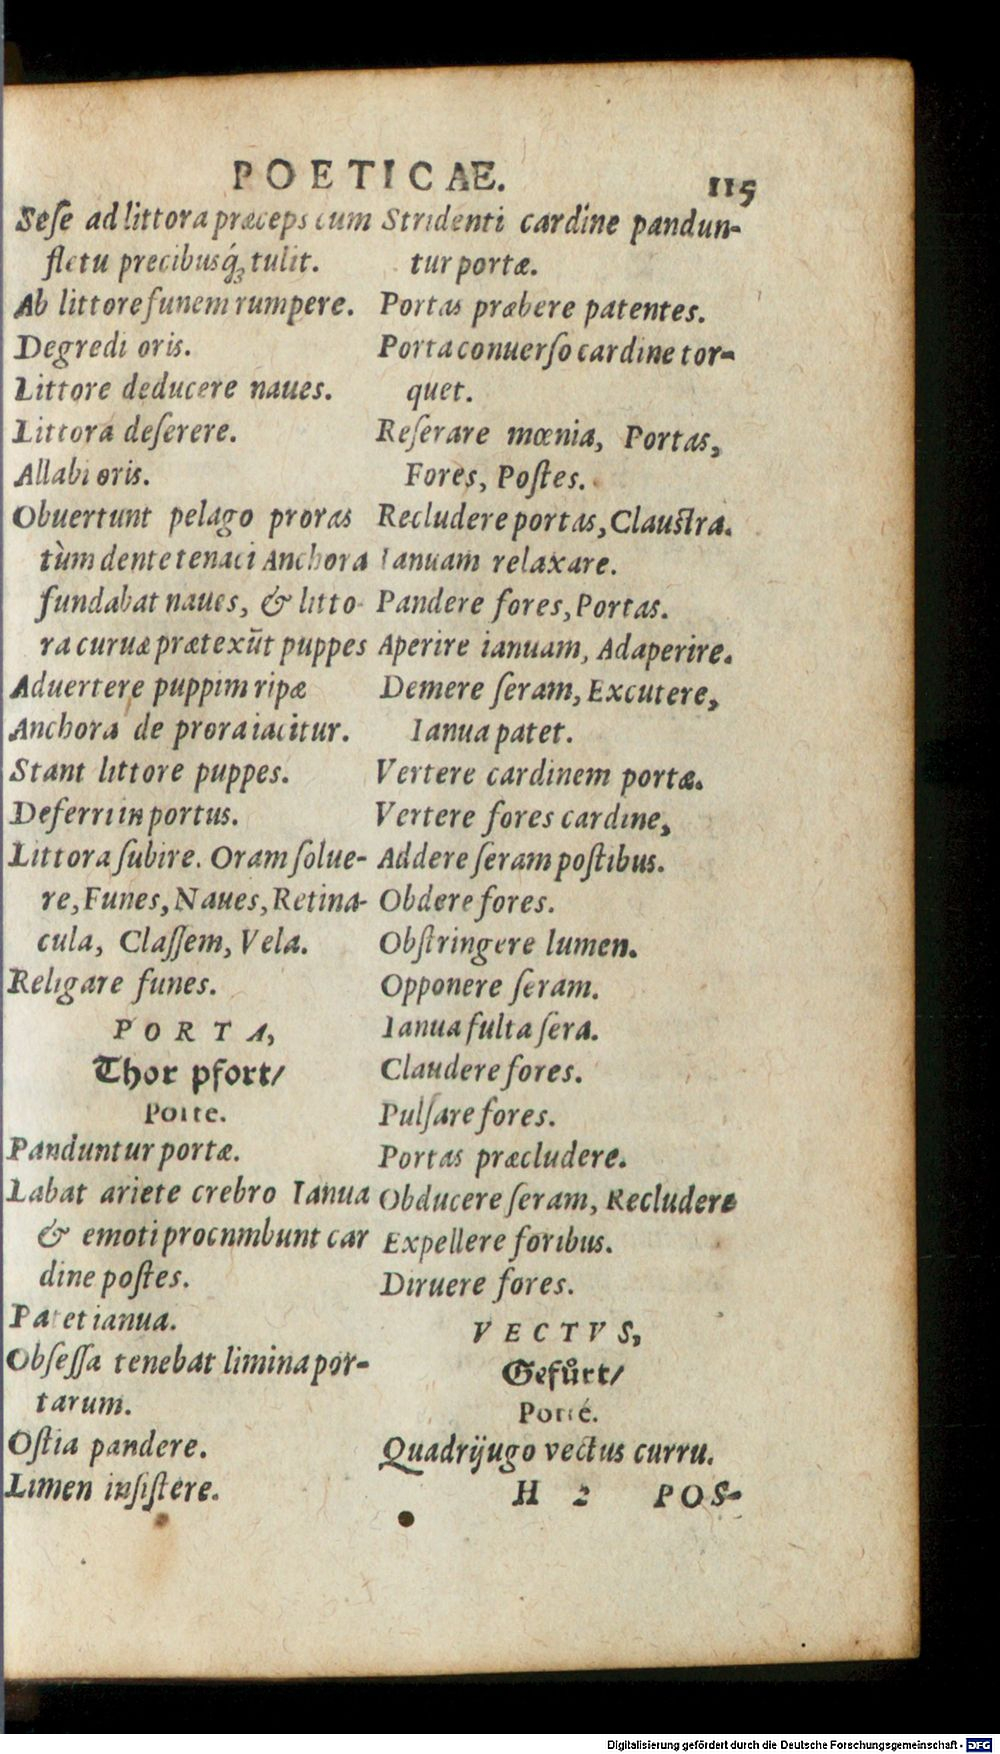 POETICAE.
115
Seſe ad littora præceps cum
fletu precibusq́; tulit.
Ab littore funem rumpere.
Degredi oris.
Littore deducere naues.
Littora deſerere.
Allabi oris.
Obuertunt pelago proras
tùm dente tenaci Anchora
fundabat naues, & litto-
ra curuæ prætexūt puppes
Aduertere puppim ripæ
Anchora de prora iacitur.
Stant littore puppes.
Deferri in portus.
Littora ſubire. Oram ſolue-
re, Funes, Naues, Retina-
cula, Claſſem, Vela.
Religare funes.
PORTA,
Thor pfort/
Porte.
Panduntur portæ.
Labat ariete crebro Ianua
& emoti procnmbunt car
dine poſtes.
Patet ianua.
Obſeſſa tenebat limina por-
tarum.
Oſtia pandere.
Limen inſiſtere.
Stridenti cardine pandun-
tur portæ.
Portas præbere patentes.
Porta conuerſo cardine tor-
quet.
Reſerare mœnia, Portas,
Fores, Poſtes.
Recludere portas, Clauſtra.
Ianuam relaxare.
Pandere fores, Portas.
Aperire ianuam, Adaperire.
Demere ſeram, Excutere,
Ianua patet.
Vertere cardinem portæ.
Vertere fores cardine,
Addere ſeram poſtibus.
Obdere fores.
Obſtringere lumen.
Opponere ſeram.
Ianua fulta ſera.
Claudere fores.
Pulſare fores.
Portas præcludere.
Obducere ſeram, Recludere
Expellere foribus.
Diruere fores.
VECTVS,
Gefuͤrt/
Porté.
Quadrijugo vectus curru.
H 2 POS-
Digitalisierung gefördert durch die Deutsche Forschungsgemeinschaft - DFG